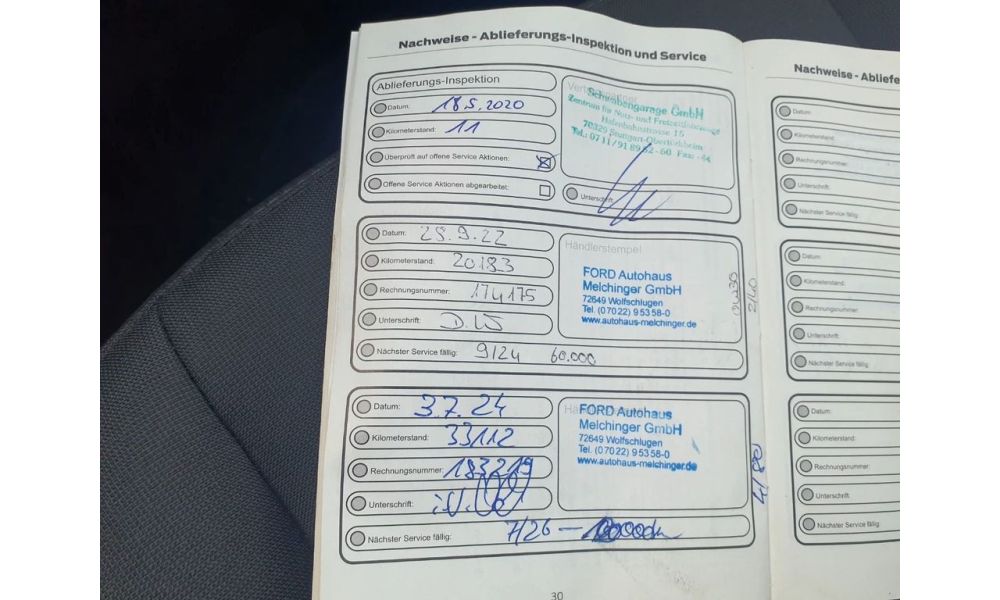 Nachweise - Ablieferungs-Inspektion und Service
Ablieferungs-Inspektion
Datum: 18.5.2020
Kilometerstand: 11
Überprüft auf offene Service Aktionen:
Offene Service Aktionen abgearbeitet:
Schwabengarage GmbH
Zentrum für Nutz- und
Hafenbahnstrasse 15
70329 Stuttgart-Obertürkheim
Unterschrift:
Datum: 28.9.22
Kilometerstand: 20183
Rechnungsnummer: 174175
Unterschrift:
Nächster Service fällig: 9/24 60.000
Händlerstempel
FORD Autohaus
Melchinger GmbH
72649 Wolfschlugen
Tel. (0 70 22) 9 53 58-0
www.autohaus-melchinger.de
2/40
Datum: 3.7.24
Kilometerstand: 33112
Rechnungsnummer: 183219
Unterschrift:
Nächster Service fällig: 7/26 —
FORD Autohaus
Melchinger GmbH
72649 Wolfschlugen
Tel. (0 70 22) 9 53 58-0
www.autohaus-melchinger.de
4/80
30
Nachweise - Abliefe
Datum:
Kilometerstand:
Rechnungsnummer:
Unterschrift:
Nächster Service fällig:
Datum:
Kilometerstand:
Rechnungsnummer:
Unterschrift:
Nächster Service fällig:
Datum:
Kilometerstand:
Rechnungsnummer:
Unterschrift:
Nächster Service fällig: